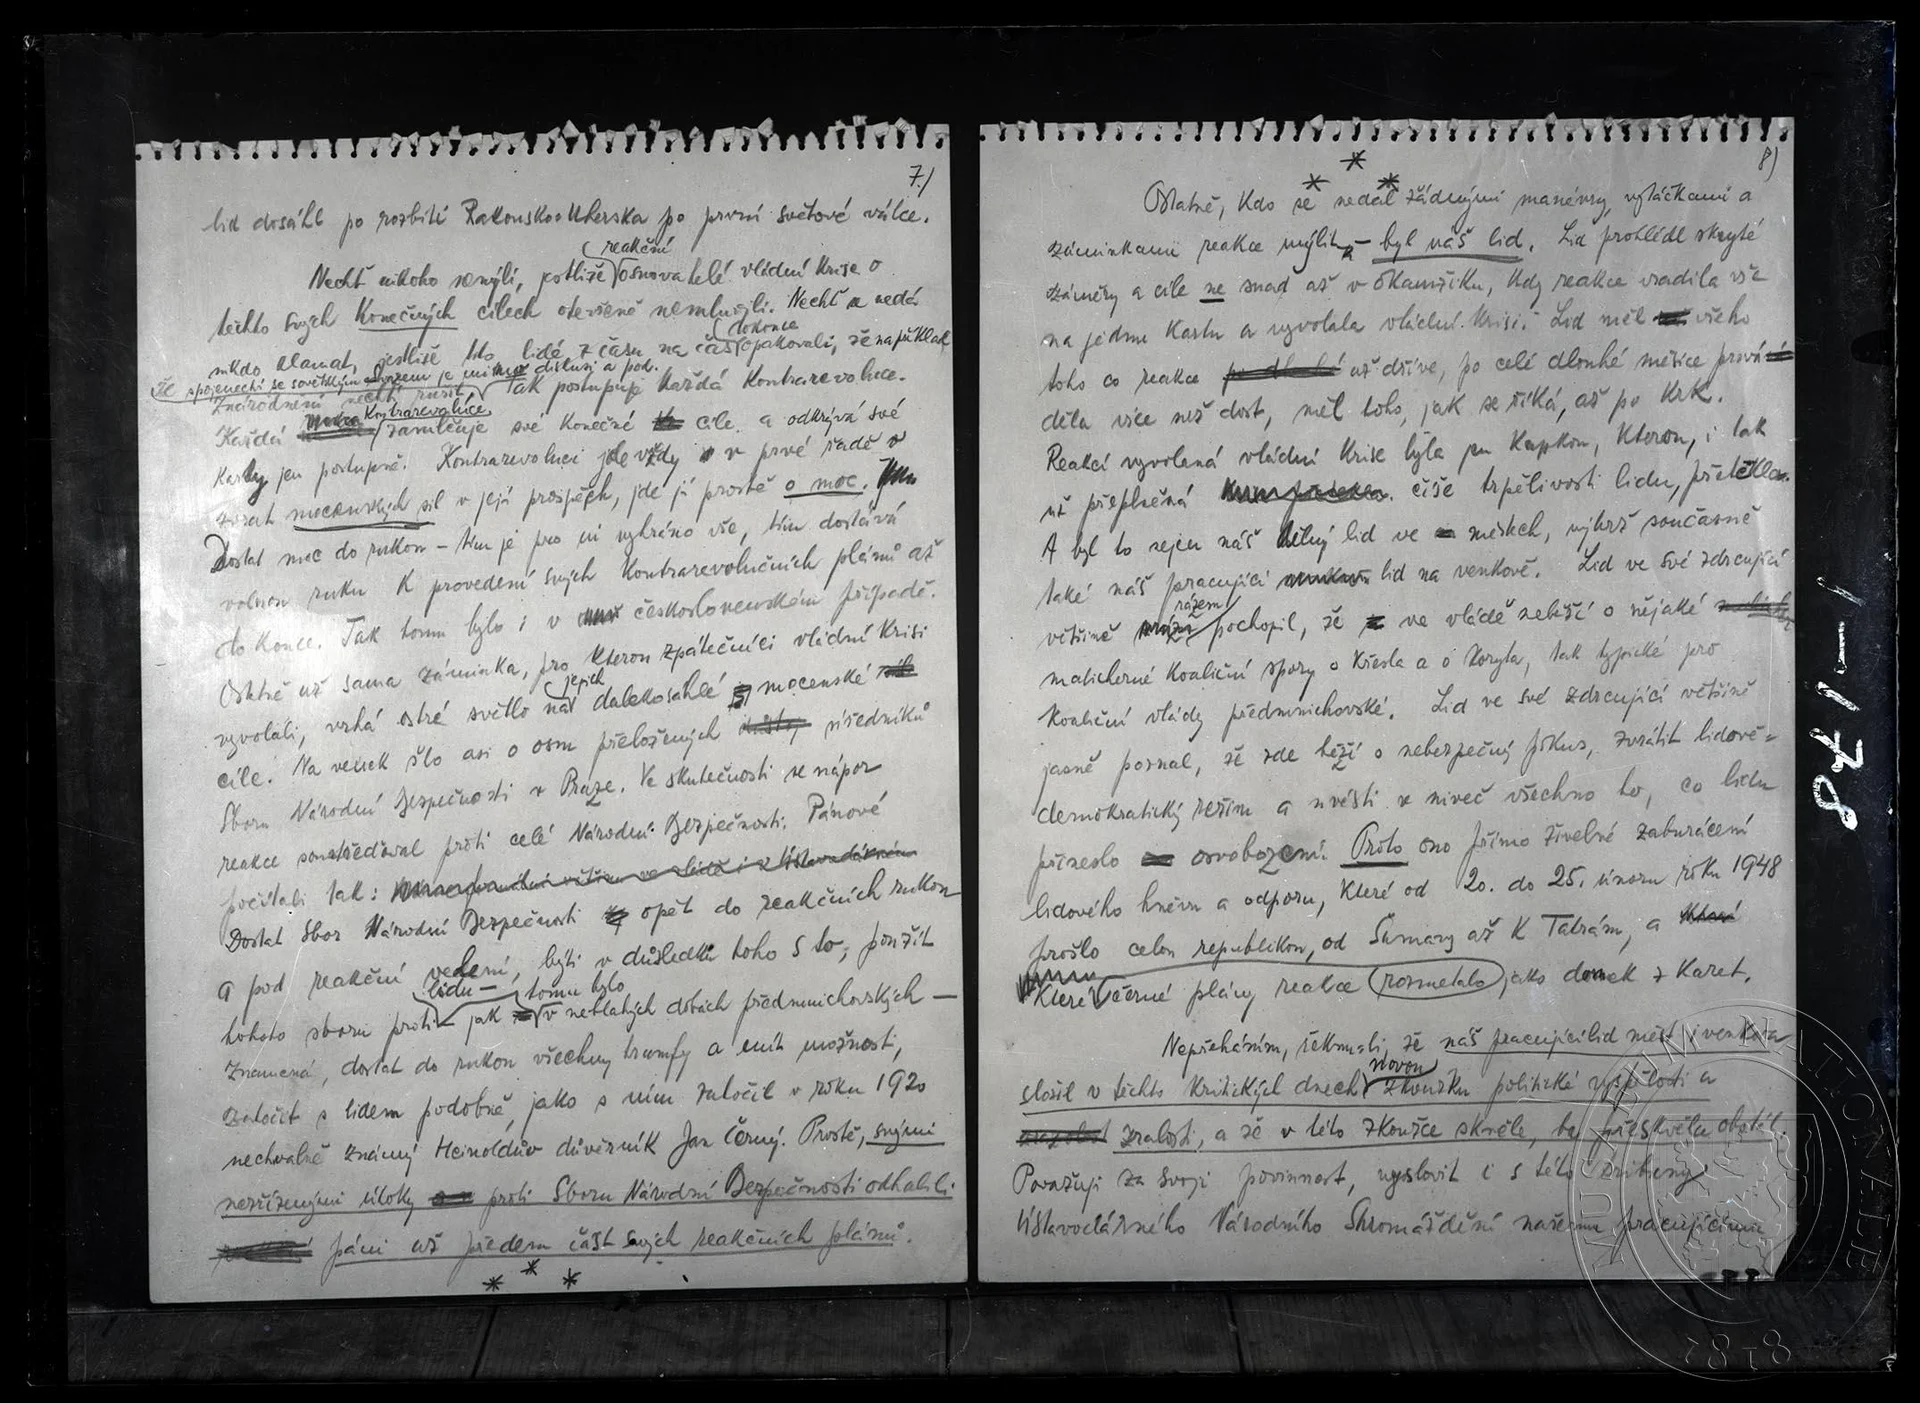 7.)
lid dosáhl po rozbití Rakousko-Uherska po první světové válce.
reakční
Nechť nikoho nemýlí, jestliže osnovatelé vládní krise o
těchto svých konečných cílech otevřeně nemluvili. Nechť se nedá
dokonce
nikdo klamat, jestliže tito lidé z času na čas opakovali, že na příklad
že spojenectví se sovětským svazem je mimo diskusi a pod.
znárodnění nechtí rušit, Tak postupuje každá kontrarevoluce.
kontrarevoluce
Každá zamlčuje své konečné cíle a odkrývá své
karty jen postupně. Kontrarevoluci jde vždy v prvé řadě o
zvrat mocenských sil v její prospěch, jde jí prostě o moc.
Dostat moc do rukou – tím je pro ni vyhráno vše, tím dostává
volnou ruku k provedení svých kontrarevolučních plánů až
do konce. Tak tomu bylo i v československém případě.
Ostatně už sama záminka, pro kterou zpátečníci vládní krisi
jejich
vyvolali, vrhá ostré světlo na dalekosáhlé mocenské
cíle. Na venek šlo asi o osm přeložených úředníků
Sboru Národní Bezpečnosti v Praze. Ve skutečnosti se nápor
reakce soustřeďoval proti celé Národní Bezpečnosti. Pánové
počítali tak:
Dostat Sbor Národní Bezpečnosti opět do reakčních rukou
a pod reakční vedení, býti v důsledku toho s to, použít
lidu – tomu bylo
tohoto sboru proti jak v neblahých dobách předmnichovských –
znamená, dostat do rukou všechny trumfy a míti možnosti,
zatočit s lidem podobně, jako s ním zatočil v roku 1920
nechvalně známý Heinoldův důvěrník Jan Černý. Prostě, svými
nezřízenými útoky proti Sboru Národní Bezpečnosti odhalili
páni už předem část svých reakčních plánů.
* * *
8)
* * *
Ostatně, kdo se nedal žádnými manévry, vytáčkami a
záminkami reakce mýlit, – byl náš lid. Lid prohlédl skryté
záměry a cíle ne snad až v okamžiku, kdy reakce vsadila vše
na jednu kartu a vyvolala vládní krisi. Lid měl všeho
toho co reakce už dříve, po celé dlouhé měsíce prová-
děla více než dost, měl toho, jak se říká, až po krk.
Reakcí vyvolaná vládní krise byla jen kapkou, kterou, i tak
už přeplněná číše trpělivosti lidu, přetekla.
A byl to nejen náš dělný lid ve městech, nýbrž současně
také náš pracující lid na venkově. Lid ve své zdrcující
rázem
většině pochopil, že ve vládě neběží o nějaké
malicherné koaliční spory o křesla a o koryta, tak typické pro
koaliční vlády předmnichovské. Lid ve své zdrcující většině
jasně poznal, že zde běží o nebezpečný pokus, zvrátit lidově-
demokratický režim a uvésti v niveč všechno to, co lidu
přineslo osvobození. Proto ono přímo živelné zaburácení
lidového hněvu a odporu, které od 20. do 25. února roku 1948
prošlo celou republikou, od Šumavy až k Tatrám, a
které černé plány reakce rozmetalo jako domek z karet.
Nepřeháním, řeknu-li, že náš pracující lid měst i venkova
novou
složil v těchto kritických dnech zkoušku politické vyspělosti a
zralosti, a že v této zkoušce skvěle, ba přeskvěle obstál.
Považuji za svoji povinnost, vysloviti i s této tribuny
Ústavodárného Národního Shromáždění našemu pracujícímu
87-1-1
MUSEUM NATIONALE
1818